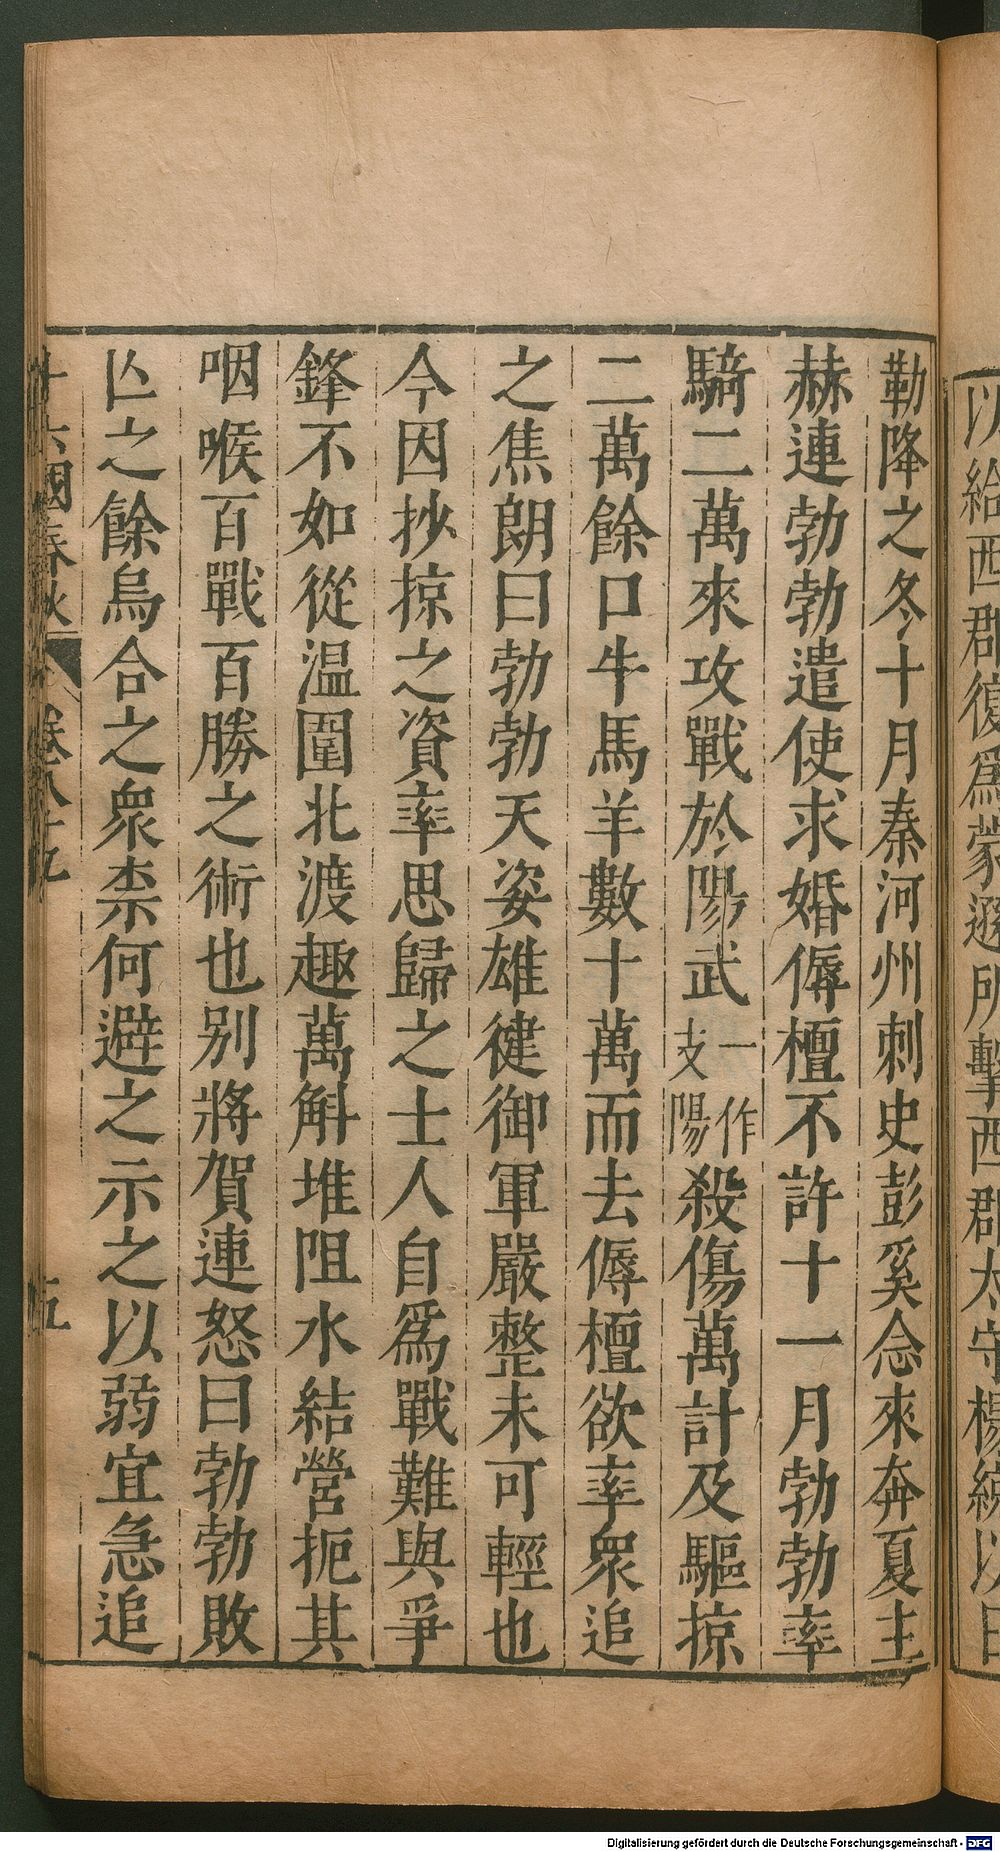 以給西郡復爲蒙遜所擊西郡太守楊統以日
勒降之冬十月秦河州刺史彭奚念來奔夏主
赫連勃勃遣使求婚傉檀不許十一月勃勃率
騎二萬來攻戰於陽武一作支陽殺傷萬計及驅掠
二萬餘口牛馬羊數十萬而去傉檀欲率衆追
之焦朗曰勃勃天姿雄健御軍嚴整未可輕也
今因抄掠之資率思歸之士人自爲戰難與爭
鋒不如從温圍北渡趣萬斛堆阻水結營扼其
咽喉百戰百勝之術也别將賀連怒曰勃勃敗
亾之餘烏合之衆柰何避之示之以弱宜急追
十六國春秋 卷八十九 五
Digitalisierung gefördert durch die Deutsche Forschungsgemeinschaft - DFG